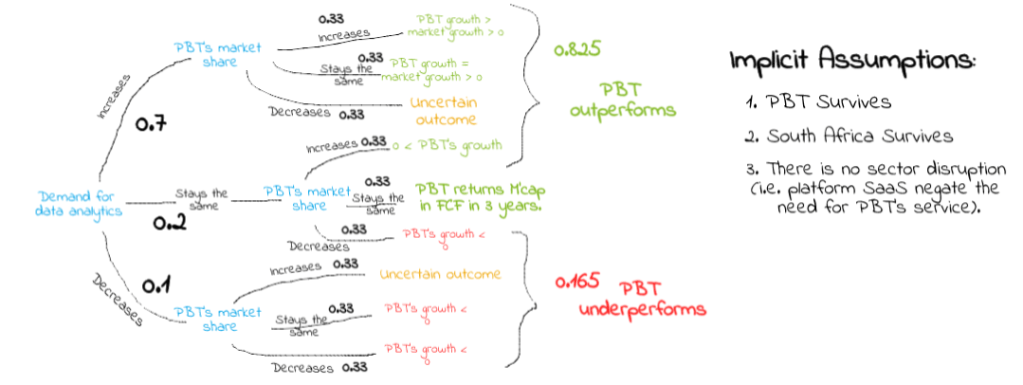 0.33
Increases
PBT growth >
market growth > 0
PBT's market
share
0.33
Stays the
same
PBT growth =
market growth > 0
Decreases 0.33
Uncertain
outcome
Increases
0.7
0.825
PBT
outperforms
Increases 0.33
0 < PBT's growth
Demand for
data analytics
Stays the
same
0.2
PBT's market
share
0.33
Stays the
same
PBT returns M'cap
in FCF in 3 years.
0.33
Decreases
PBT's growth <
Decreases
0.1
PBT's market
share
Increases 0.33
Uncertain outcome
0.33
Stays the
same
PBT's growth <
Decreases 0.33
PBT's growth <
0.165
PBT
underperforms
Implicit Assumptions:
1. PBT Survives
2. South Africa Survives
3. There is no sector disruption
(i.e. platform SaaS negate the
need for PBT's service).